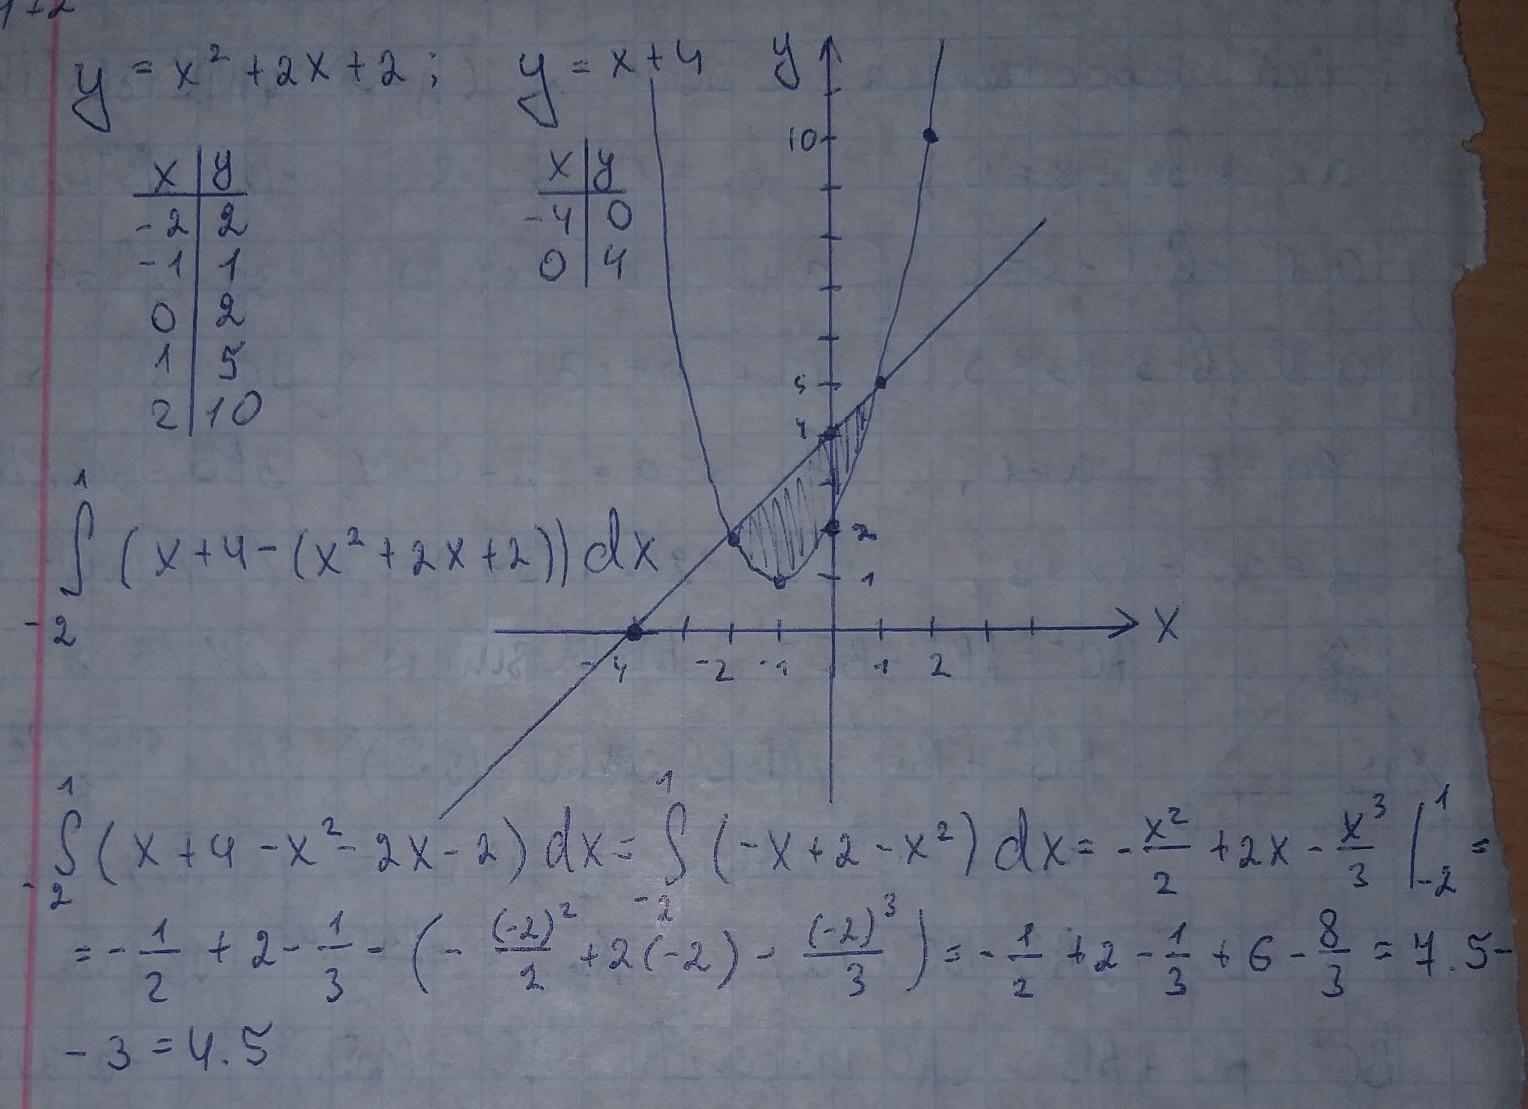 y = x² + 2x + 2; y = x + 4
x | y
-2 | 2
-1 | 1
0 | 2
1 | 5
2 | 10
x | y
-4 | 0
0 | 4
y
10
5
4
2
1
-4 -2 -1 1 2 x
∫₋₂¹ (x+4-(x²+2x+2)) dx
∫₋₂¹ (x+4-x²-2x-2) dx = ∫₋₂¹ (-x+2-x²) dx = -x²/2 + 2x - x³/3 |₋₂¹ =
= -1/2 + 2 - 1/3 - (-(-2)²/2 + 2(-2) - (-2)³/3) = -1/2 + 2 - 1/3 + 6 - 8/3 = 7.5 -
- 3 = 4.5